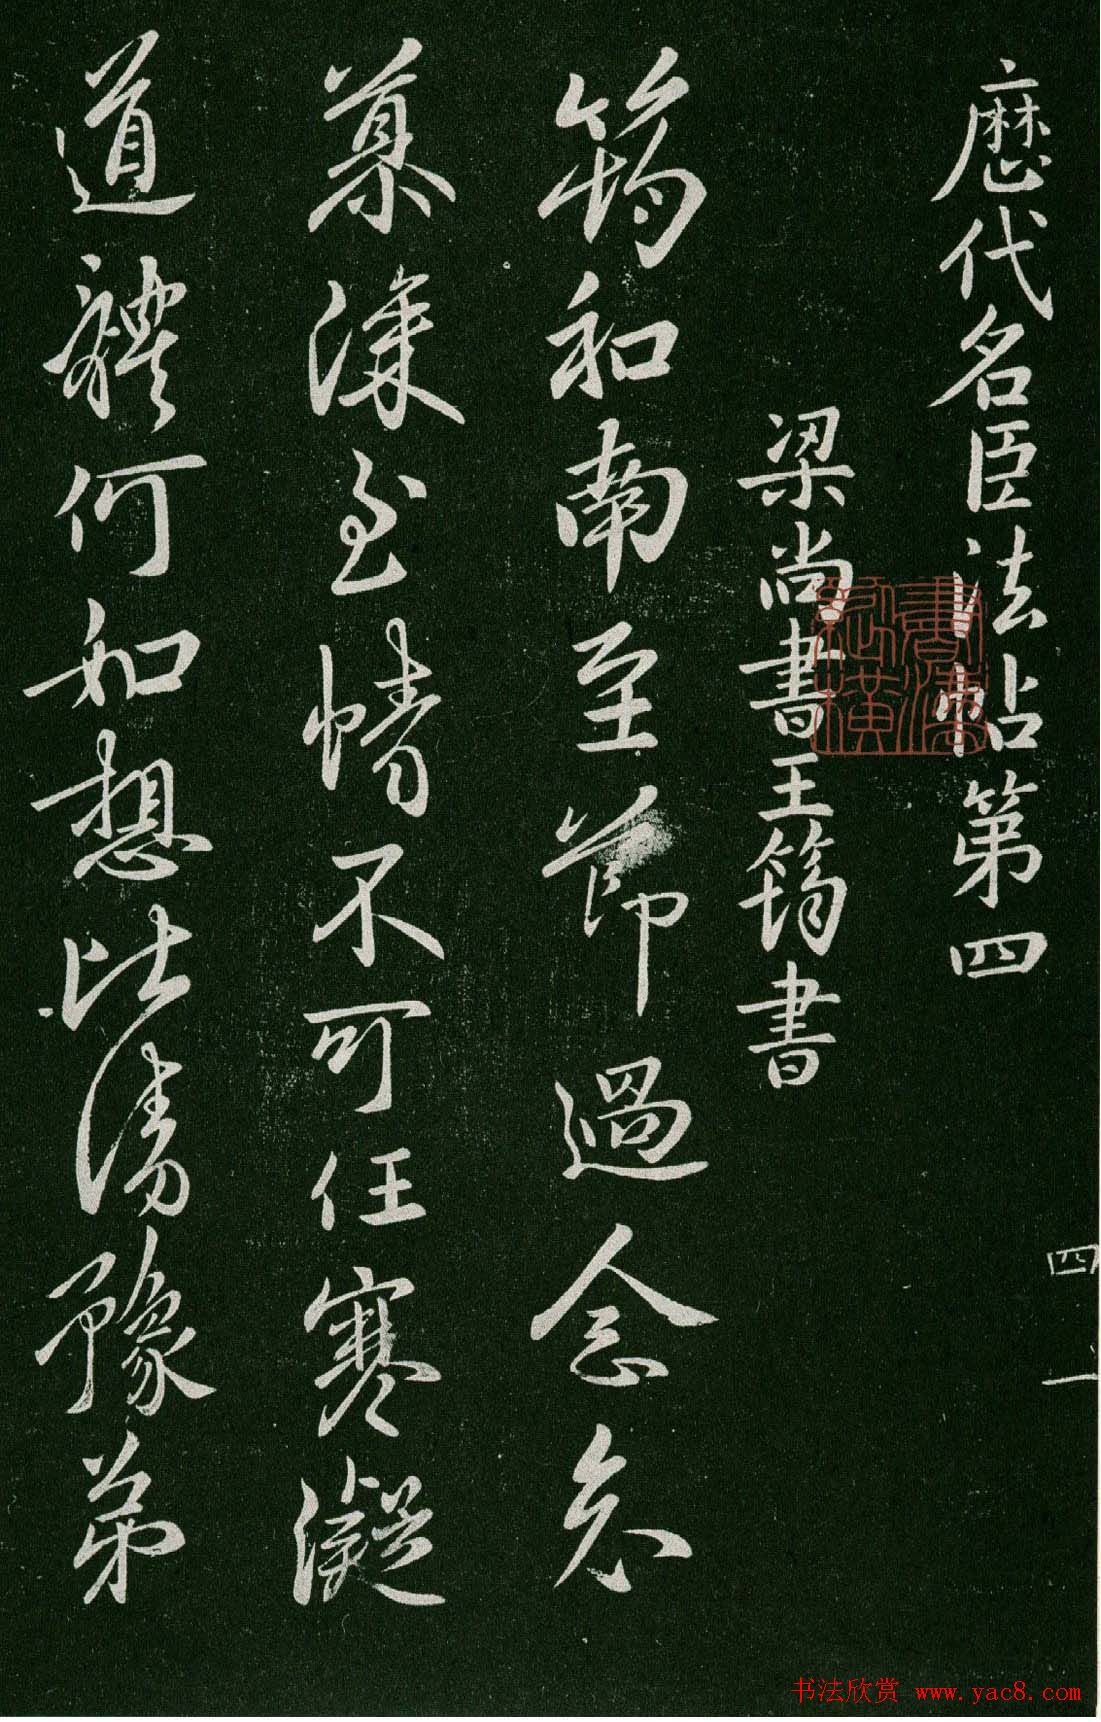 歷代名臣法帖第四
梁尚書王筠書
筠和南至節過念念
哀深至情不可任寒凝
道體何如想比清豫弟
四 一
书法欣赏 www.yac8.com